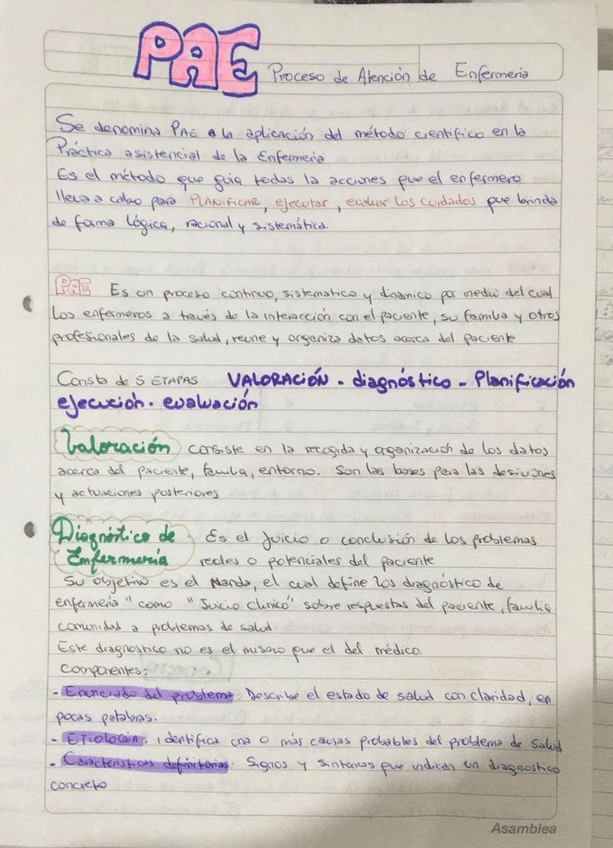 PAE Proceso de Atención de Enfermeria
Se denomina PAE a la aplicación del método científico en la
Práctica asistencial de la Enfermería
Es el método que guia todas la acciones que el enfermero
lleva a cabo para PLANIFICAR, ejecutar, evaluar los cuidados que brinda
de forma lógica, racional y sistemática.
PAE Es un proceso continuo, sistematico y dinamico por medio del cual
Los enfermeros a través de la interacción con el paciente, su familia y otros
profesionales de la salud, reune y organiza datos acerca del paciente
Consta de 5 ETAPAS VALORACIÓN - diagnóstico - Planificación
ejecución - evaluación
Valoración consiste en la recogida y organización de los datos
acerca del paciente, familia, entorno. Son las bases para las desiciones
y actuaciones posteriores
Diagnóstico de Enfermería Es el juicio o conclusión de los problemas
reales o potenciales del paciente
Su objetivo es el Nanda, el cual define los diagnóstico de
enfermeria "como "Juicio clinico" sobre respuestas del paciente, familia
comunidad a problemas de salud.
Este diagnostico no es el mismo que el del médico
Componentes:
- Enunciado del problema: Describe el estado de salud con claridad, en
pocas palabras.
- ETIOLOGIA: identifica una o más causas probables del problema de Salud
- Caracteristicas definitorias: Signos y sintomas que indican un diagnostico
concreto
Asamblea